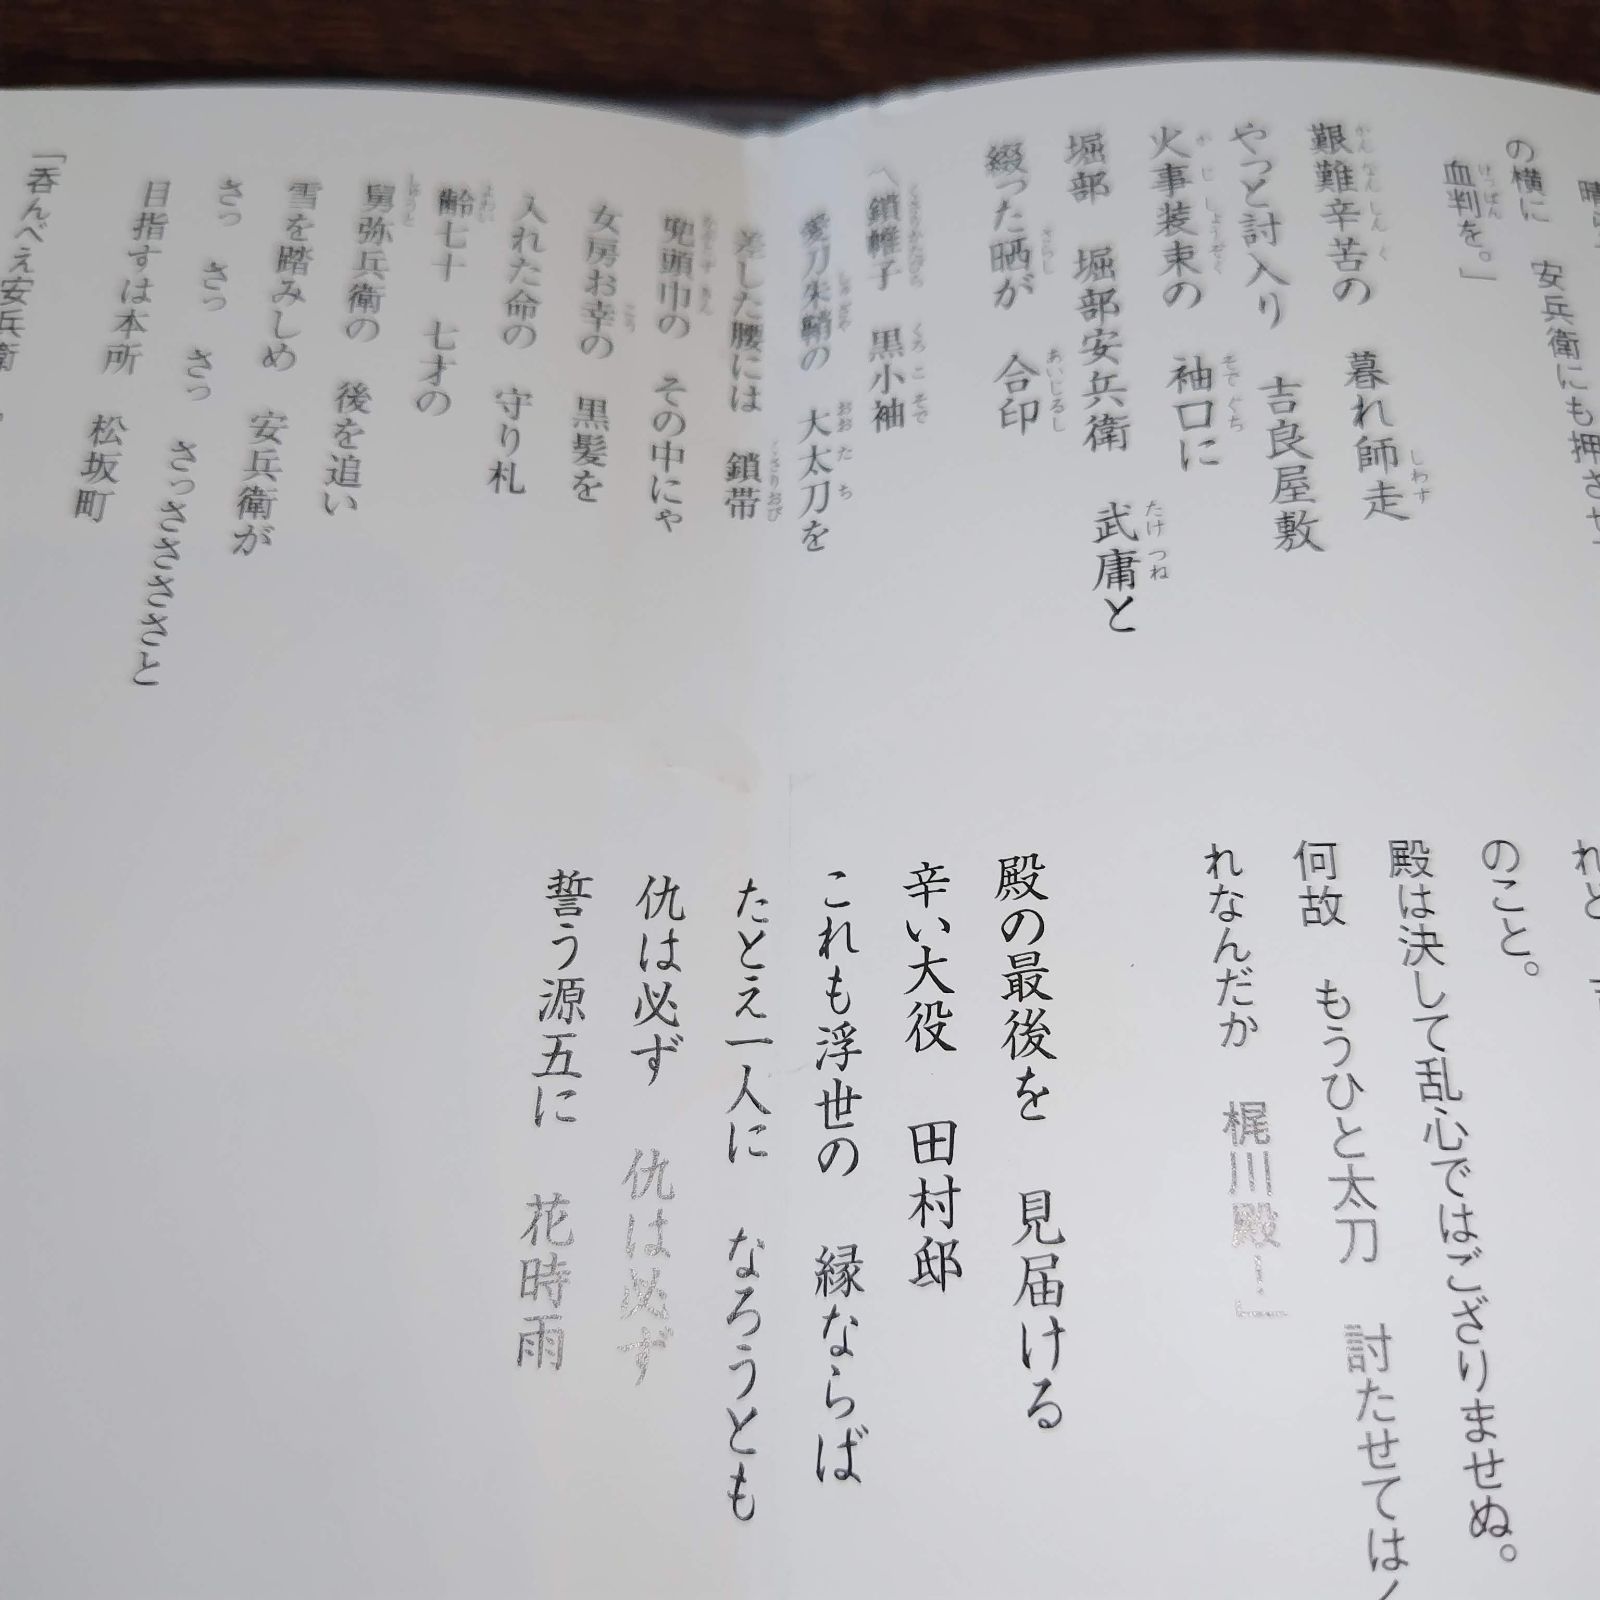 晴ら
の横に 安兵衛にも押させ
血判を。」
艱難辛苦の 暮れ師走
やっと討入り 吉良屋敷
火事装束の 袖口に
堀部 堀部安兵衛 武庸と
綴った晒が 合印
〽鎖帷子 黒小袖
愛刀朱鞘の 大太刀を
差した腰には 鎖帯
兜頭巾の その中にゃ
女房お幸の 黒髪を
入れた命の 守り札
齢七十 七才の
舅弥兵衛の 後を追い
雪を踏みしめ 安兵衛が
さっ さっ さっ さっさささささと
目指すは本所 松坂町
「呑んべえ安兵衛
れど
のこと。
殿は決して乱心ではござりませぬ。
何故 もうひと太刀 討たせては
れなんだか 梶川殿！」
殿の最後を 見届ける
辛い大役 田村邸
これも浮世の 縁ならば
たとえ一人に なろうとも
仇は必ず 仇は必ず
誓う源五に 花時雨